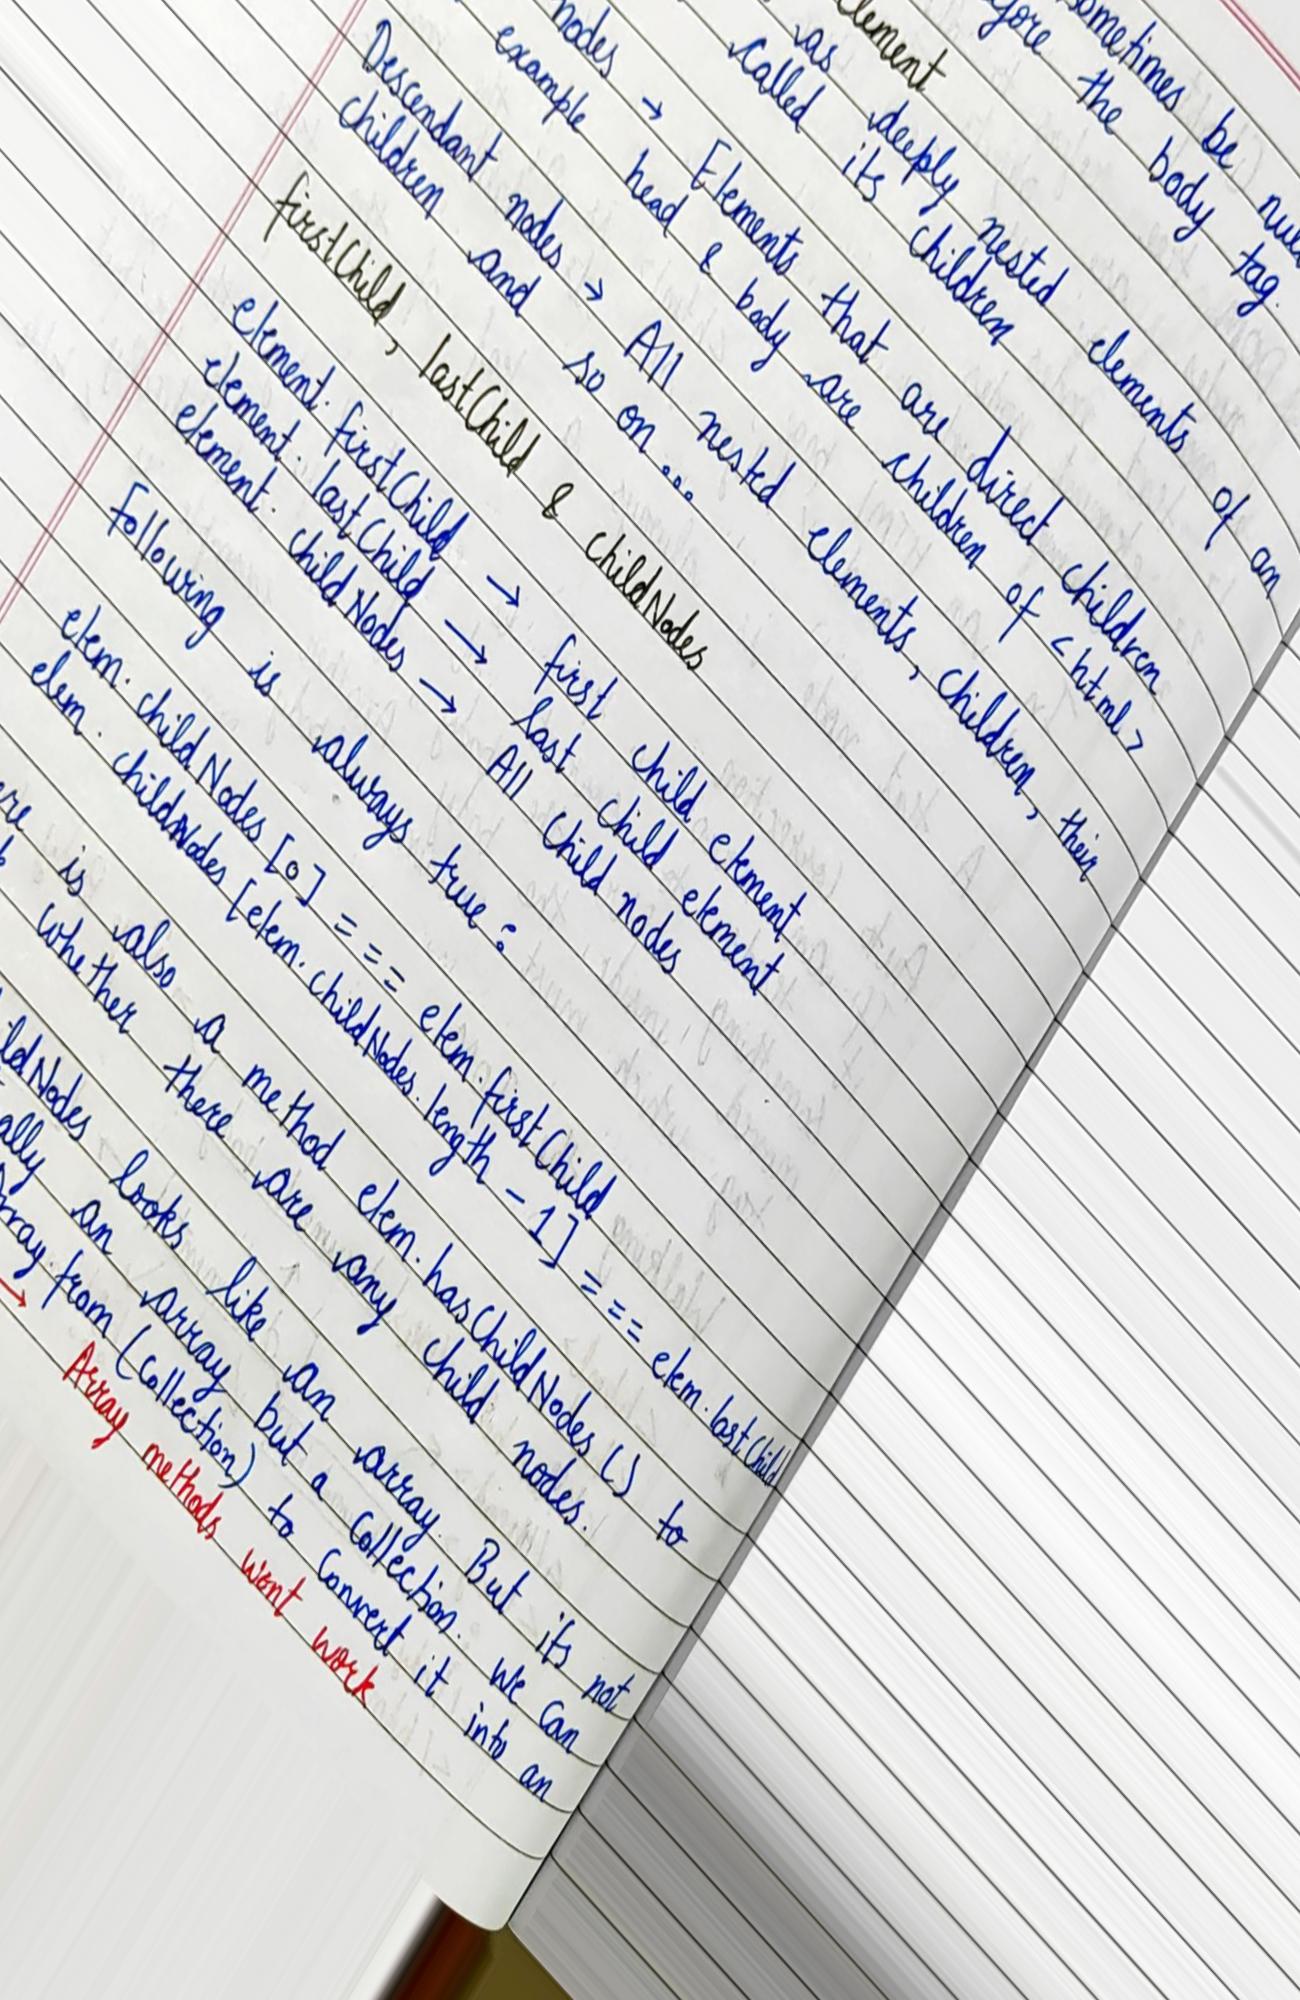 sometimes be
the body tag.
element
as deeply nested elements of an
called its children
nodes → Elements that are direct children
example head & body are children of <html>
Descendant nodes → All nested elements, children, their
children and so on...
firstChild, lastChild & childNodes
element. firstChild → first child element
element. lastChild → last child element
element. childNodes → All child nodes
Following is always true :
elem. childNodes [0] === elem. firstChild
elem. childNodes [elem. childNodes. length - 1] === elem. lastChild
is also a method elem. hasChildNodes () to
whether there are any child nodes.
looks like an array. But its not
an array but a Collection. We can
from (Collection) to Convert it into an
→ Array methods wont work